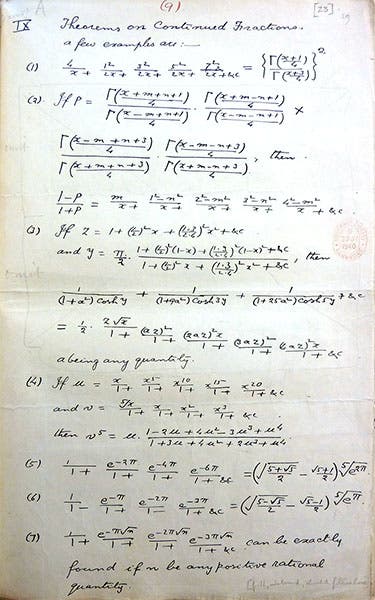 (9) [23]
IX Theorems on Continued Fractions.
a few examples are:—
(1) 4/x+ 1²/2x+ 3²/2x+ 5²/2x+ 7²/2x+&c = {Γ((x+1)/4)/Γ((x+3)/4)}²
(2) If P = Γ((x+m+n+1)/4)/Γ((x-m+n+1)/4) · Γ((x+m-n+1)/4)/Γ((x-m-n+1)/4) ×
Γ((x-m+n+3)/4)/Γ((x+m+n+3)/4) · Γ((x-m-n+3)/4)/Γ((x+m-n+3)/4), then
(1-P)/(1+P) = m/x+ (1²-n²)/x+ (2²-m²)/x+ (3²-n²)/x+ (4²-m²)/x+ &c
(3) If z = 1+(½)²x+(1·3/2·4)²x²+&c
and y = π/2 · (1+(½)²(1-x)+(1·3/2·4)²(1-x)²+&c)/(1+(½)²x+(1·3/2·4)²x²+&c), then
1/((1+a²)cosh y) + 1/((1+9a²)cosh 3y) + 1/((1+25a²)cosh 5y) +&c
= ½ · z√x/1+ (az)²/1+ (2az)²x/1+ (3az)²/1+ (4az)²x/1+ &c
a being any quantity.
(4) If u = x/1+ x⁵/1+ x¹⁰/1+ x¹⁵/1+ x²⁰/1+ &c
and v = ⁵√x/1+ x/1+ x²/1+ x³/1+ &c
then v⁵ = u. (1-2u+4u²-3u³+u⁴)/(1+3u+4u²+2u³+u⁴)
(5) 1/1+ e^(-2π)/1+ e^(-4π)/1+ e^(-6π)/1+ &c = (√((5+√5)/2) - (√5+1)/2) ⁵√(e^(2π))
(6) 1/1- e^(-π)/1+ e^(-2π)/1- e^(-3π)/1+ &c = (√((5-√5)/2) - (√5-1)/2) ⁵√(e^π)
(7) 1/1+ e^(-π√n)/1+ e^(-2π√n)/1+ e^(-3π√n)/1+ &c can be exactly
found if n be any positive rational
quantity.